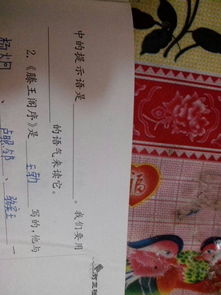 中的提示语是 。我们要用
的语气来读它。
2.《滕王阁序》是 王勃 写的,他与
杨炯 、 卢照邻 、 骆宾王